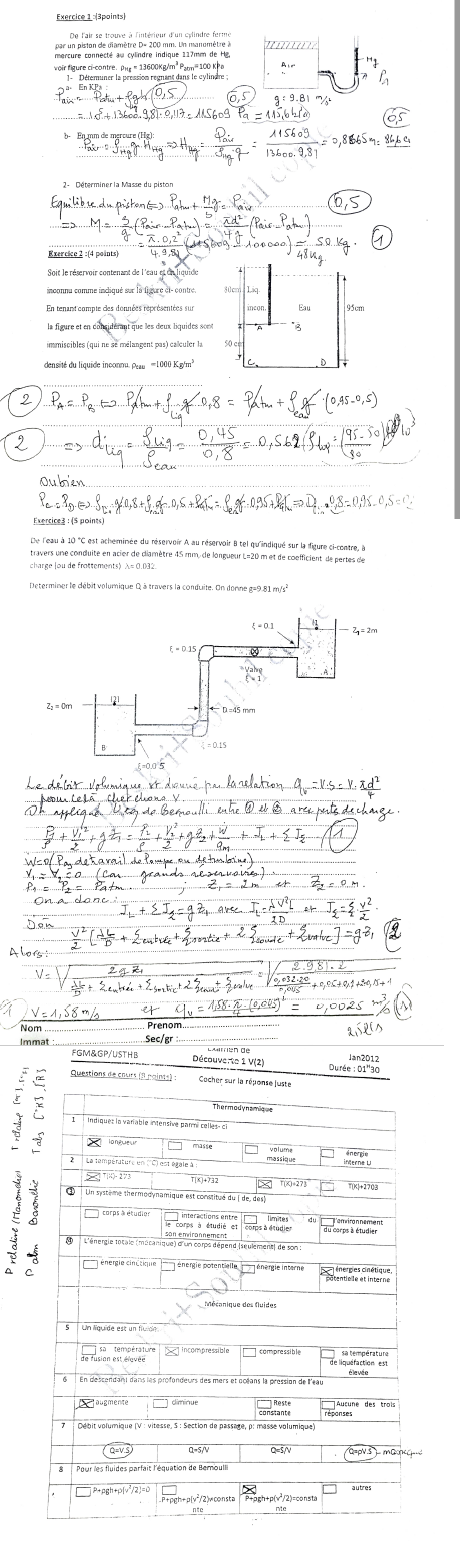 Exercice 1 :(3points)
De l'air se trouve à l'intérieur d'un cylindre fermé
par un piston de diamètre D= 200 mm. Un manomètre à
mercure connecté au cylindre indique 117mm de Hg,
voir figure ci-contre. ρHg = 13600Kg/m³ Patm=100 KPa
Air
Hg
P1
1- Déterminer la pression regnant dans le cylindre ;
a- En KPa :
0,5
g = 9.81 m/s²
Pair = Patm + ρgh
0,5
= 10⁵ + 13600.9.81.0,117 = 115609 Pa = 115,6
0,5
b- En mm de mercure (Hg):
Pair = ρHg g HHg ⟹ HHg = Pair / ρHg.g = 115609 / 13600.9,81 = 0,8665m = 86,6 cm
2- Déterminer la Masse du piston
Equilibre du piston ⟺ Patm + Mg/S = Pair
0,5
⟹ M = S/g (Pair - Patm) = πd²/4g (Pair - Patm)
= π.0,2²/4.9,81 (115609 - 100000) ≈ 50 Kg.
1
48Kg
Exercice 2 :(4 points)
Soit le réservoir contenant de l'eau et du liquide
inconnu comme indiqué sur la figure ci- contre.
80cm Liq. incon. Eau 95cm
En tenant compte des données représentées sur
A B
la figure et en considérant que les deux liquides sont
immiscibles (qui ne se mélangent pas) calculer la
50 cm
densité du liquide inconnu. ρeau =1000 Kg/m³
C D
2 PA = PB ⟺ Patm + ρliq g 0,8 = Patm + ρeau g (0,95-0,5)
2 ⟹ dliq = ρliq / ρeau = 0,45 / 0,8 = 0,562
Oubien
Exercice3 : (5 points)
De l'eau à 10 °C est acheminée du réservoir A au réservoir B tel qu'indiqué sur la figure ci-contre, à
travers une conduite en acier de diamètre 45 mm, de longueur L=20 m et de coefficient de pertes de
charge (ou de frottements) λ= 0.032.
Determiner le débit volumique Q à travers la conduite. On donne g=9.81 m/s²
ξ = 0.1
(1
Z1 = 2m
ξ = 0.15
Valve
ξ = 1
A
Z2 = 0m
(2)
D=45 mm
B
ξ = 0.15
Le débit volumique est donné par la relation qv = V.S = V.πd²/4
pour cela cherchons V.
On applique l'éq de Bernoulli entre ① et ② avec perte de charge.
P1/ρ + V1²/2 + gZ1 = P2/ρ + V2²/2 + gZ2 + W/qm + JL + ΣJs
1
W=0 (Pas de travail de Pompe ou de turbine)
V1 = V2 = 0 (Car grands reservoirs).
P1 = P2 = Patm ; Z1 = 2m et Z2 = 0 m.
On a donc :
JL + ΣJs = gZ1 avec JL = λLV²/2D et Js = ξ V²/2
Donc
V²/2 [λL/D + ξentrée + ξsortie + 2ξcoude + ξvalve] = gZ1
2
Alors :
V = 1,58 m/s et qv = 1,58.π/4.(0,045)² = 0,0025 m³/s
Nom Prenom
Immat : Sec/gr :
FGM&GP/USTHB
Examen de
Découverte 1 V(2)
Jan2012
Durée : 01ʰ30
Questions de cours (8 points) : Cocher sur la réponse juste
Thermodynamique
1 Indiquez la variable intensive parmi celles- ci
longueur masse volume massique énergie interne U
2 La température en (°C) est égale à :
T(K)- 273 T(K)+732 T(K)+273 T(K)+2703
3 Un système thermodynamique est constitué du ( de, des)
corps à étudier interactions entre le corps à étudié et son environnement limites du corps à étudier l'environnement du corps à étudier
4 L'énergie totale (mécanique) d'un corps dépend (seulement) de son :
énergie cinétique énergie potentielle énergie interne énergies cinétique, potentielle et interne
Mécanique des fluides
5 Un liquide est un fluide
sa température de fusion est élevée incompressible compressible sa température de liquéfaction est élevée
6 En descendant dans les profondeurs des mers et océans la pression de l'eau
augmente diminue Reste constante Aucune des trois réponses
7 Débit volumique (V : vitesse, S : Section de passage, ρ: masse volumique)
Q=V.S Q=S/V Q=S/V Q=ρV.S
8 Pour les fluides parfait l'équation de Bernoulli
P+ρgh+ρ(v²/2)=0 P+ρgh+ρ(v²/2)≠constante P+ρgh+ρ(v²/2)=constante autres
P relative (Manometre)
P atm Barometre
T relative
T abs